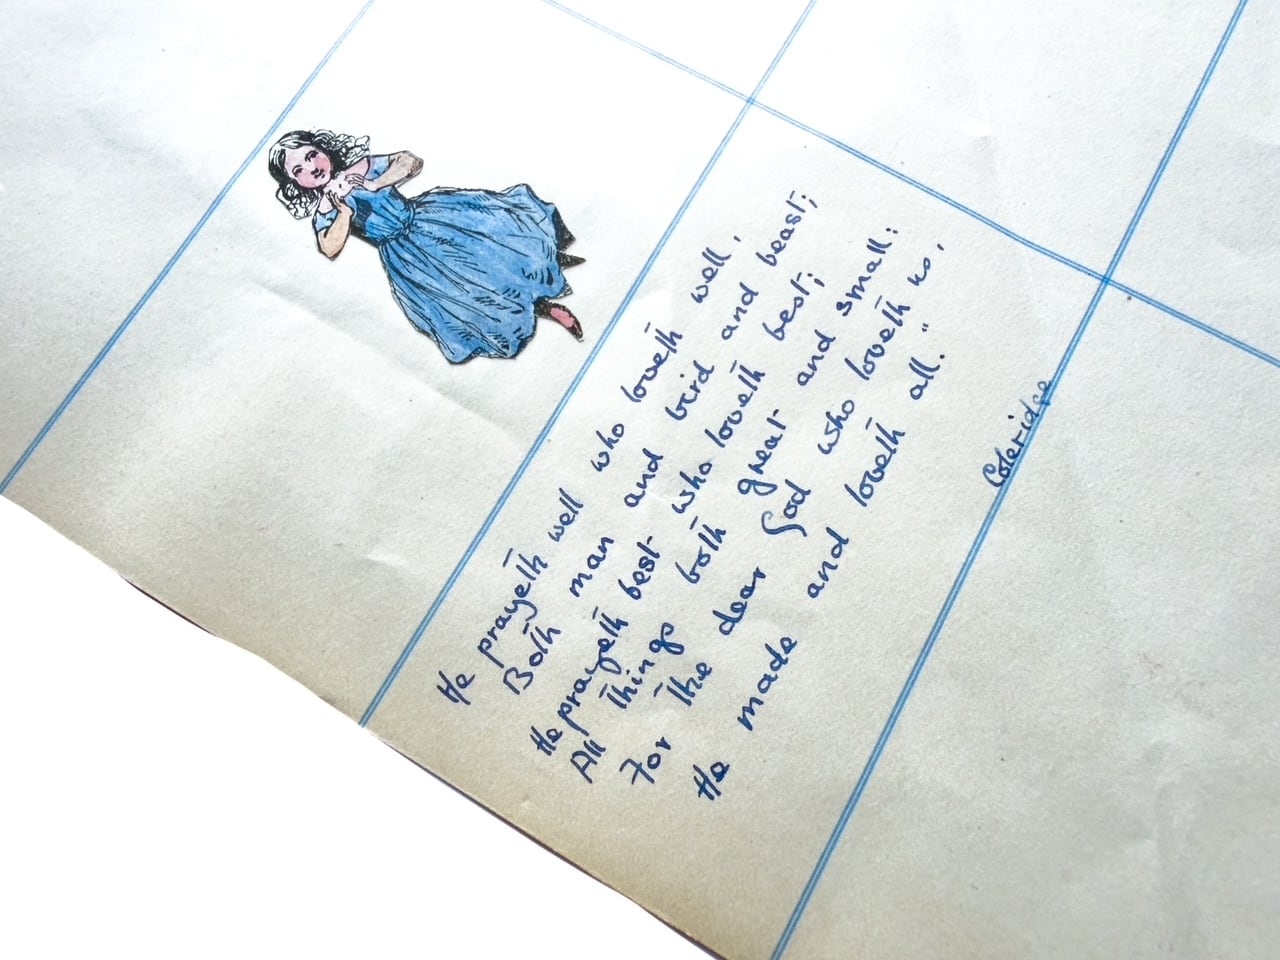 He prayeth well who loveth well,
Both man and bird and beast;
He prayeth best who loveth best;
All things both great and small:
For the dear God who loveth us,
He made and loveth all."
Coleridge